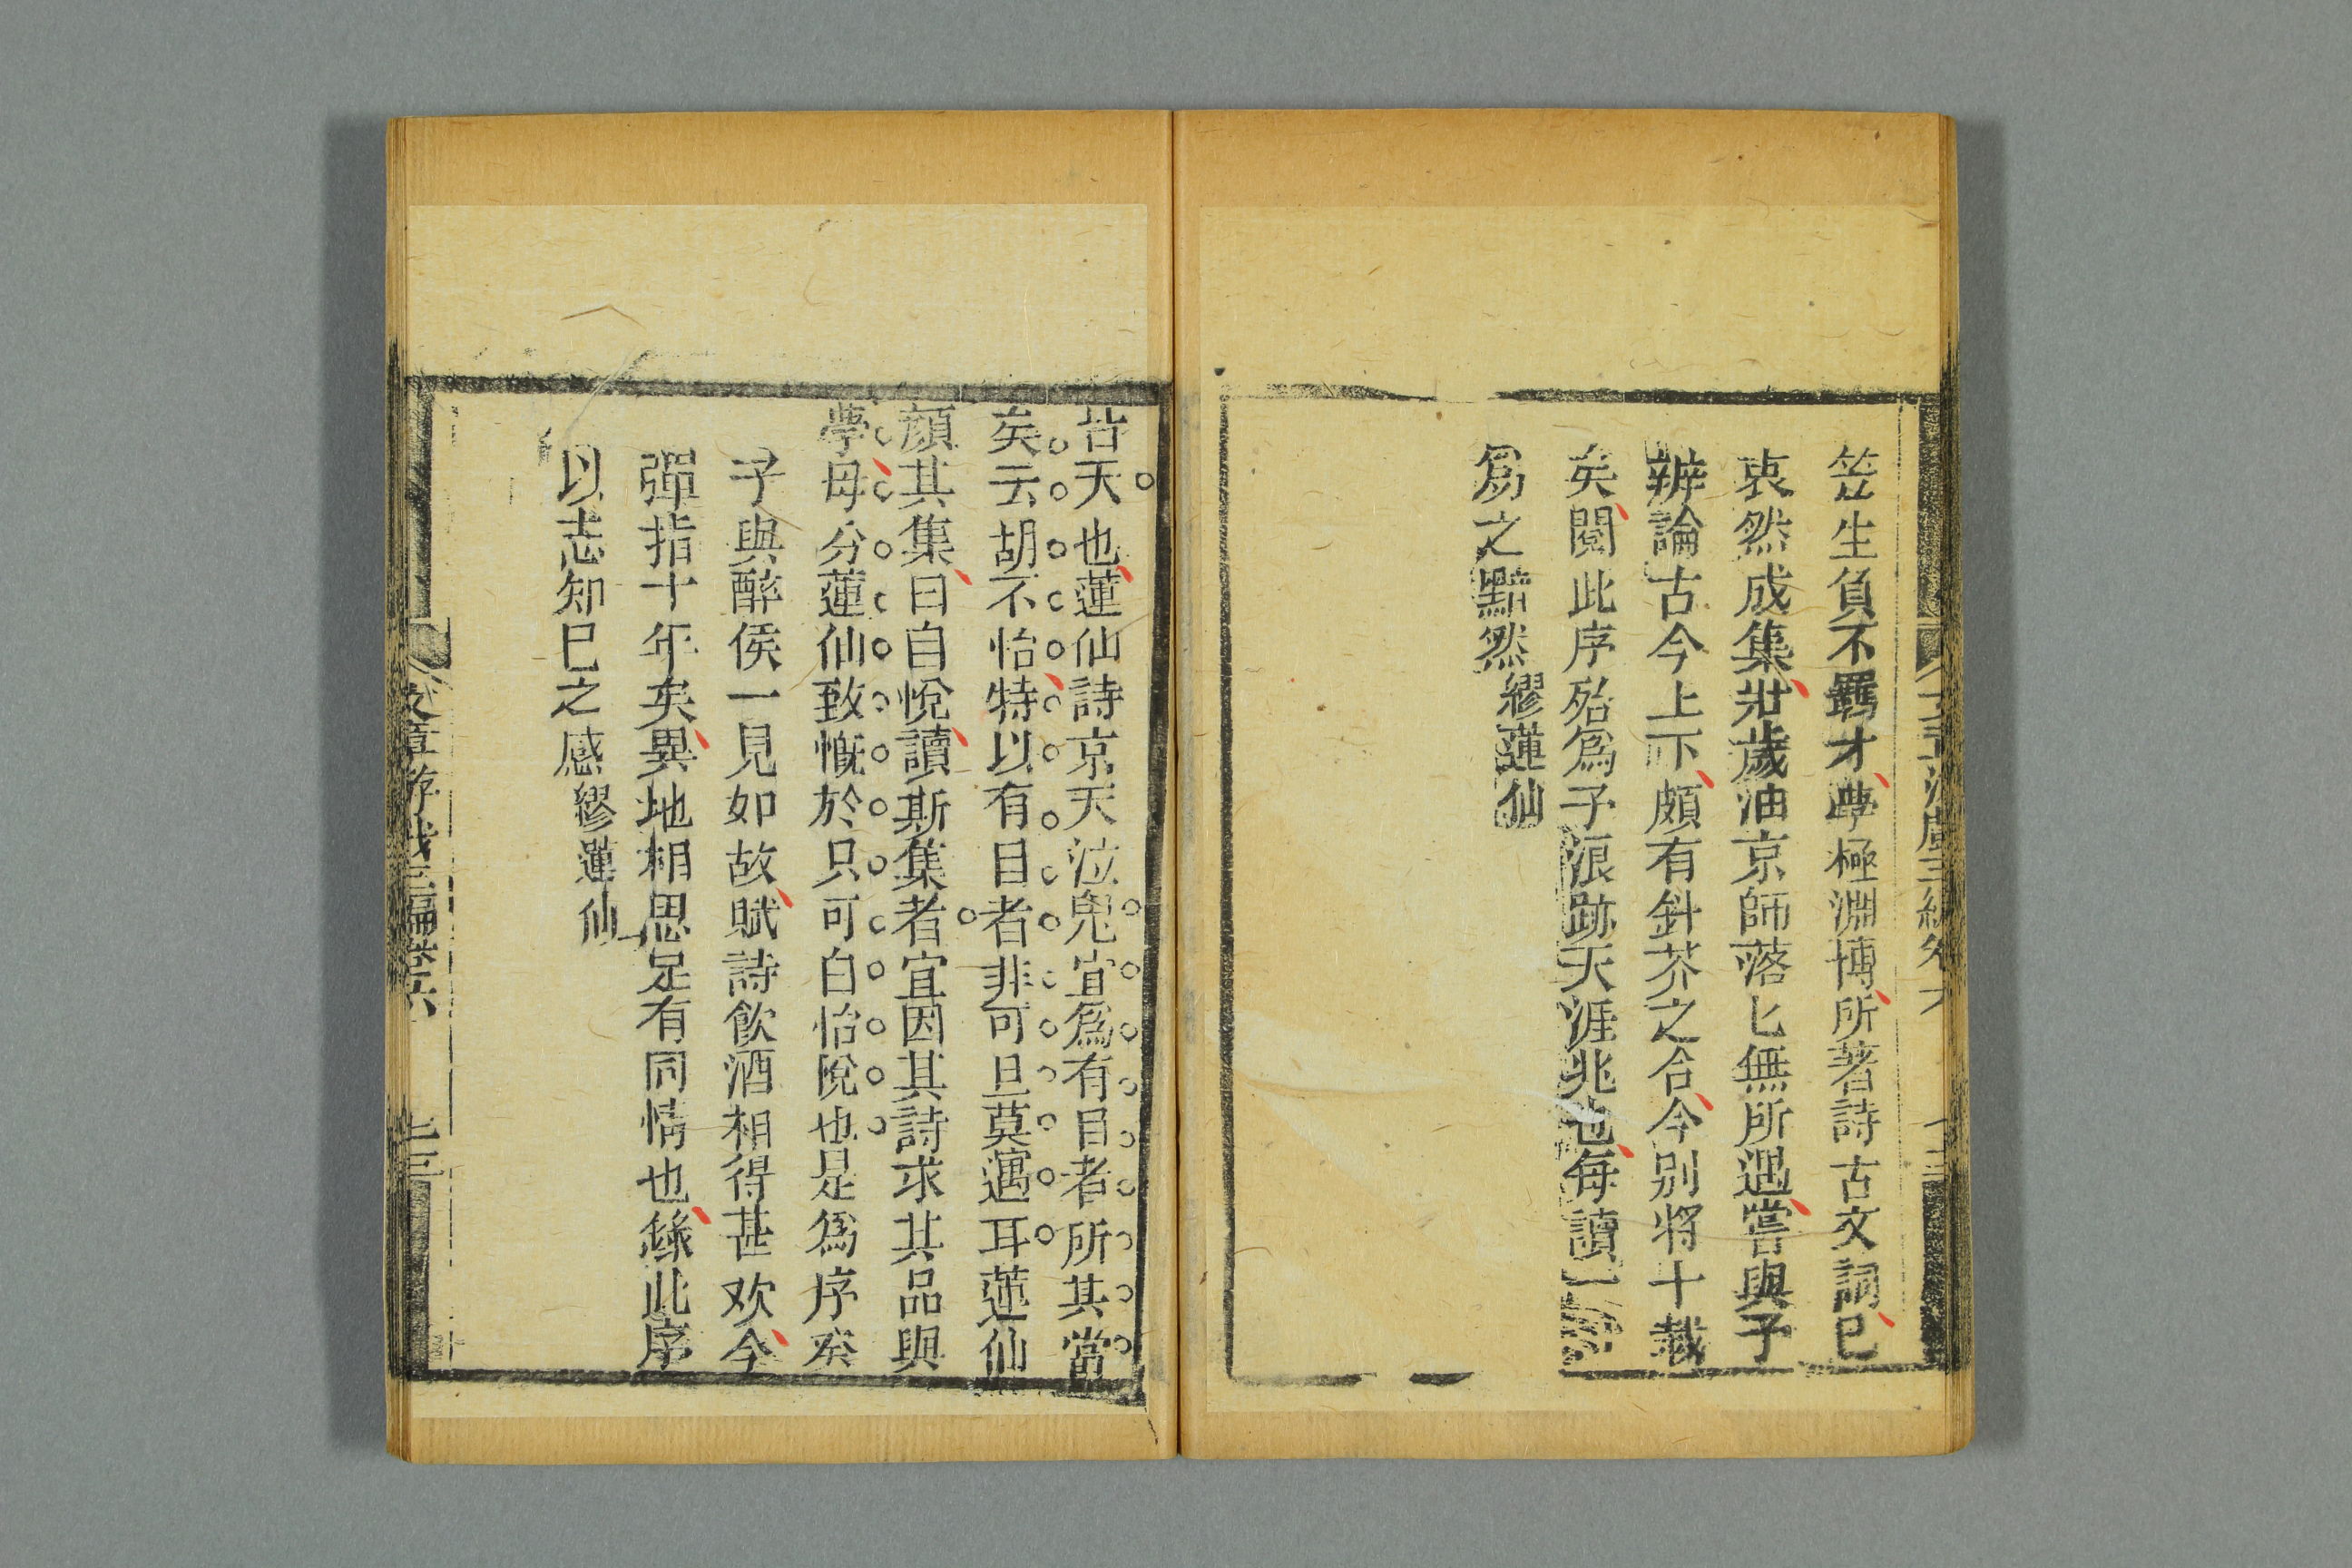 笠生負不羈才學極淵博所著詩古文詞已
裒然成集壯歲油京師落匕無所遇嘗與予
辨論古今上下頗有針芥之合今别將十載
矣閱此序殆爲予浪跡天涯兆也每讀一
爲之黯然繆蓮仙
昔天也蓮仙詩京天泣鬼宜爲有目者所其當
矣云胡不怡特以有目者非可旦莫遇耳蓮仙
顔其集曰自悅讀斯集者宜因其詩求其品與
學毋分蓮仙致慨於只可白怡悅也是爲序矣
予與醉侯一見如故賦詩飮酒相得甚欢今
彈指十年矣異地相思足有同情也錄此序
以志知巳之感繆蓮仙
文章游戲三編卷六 十三